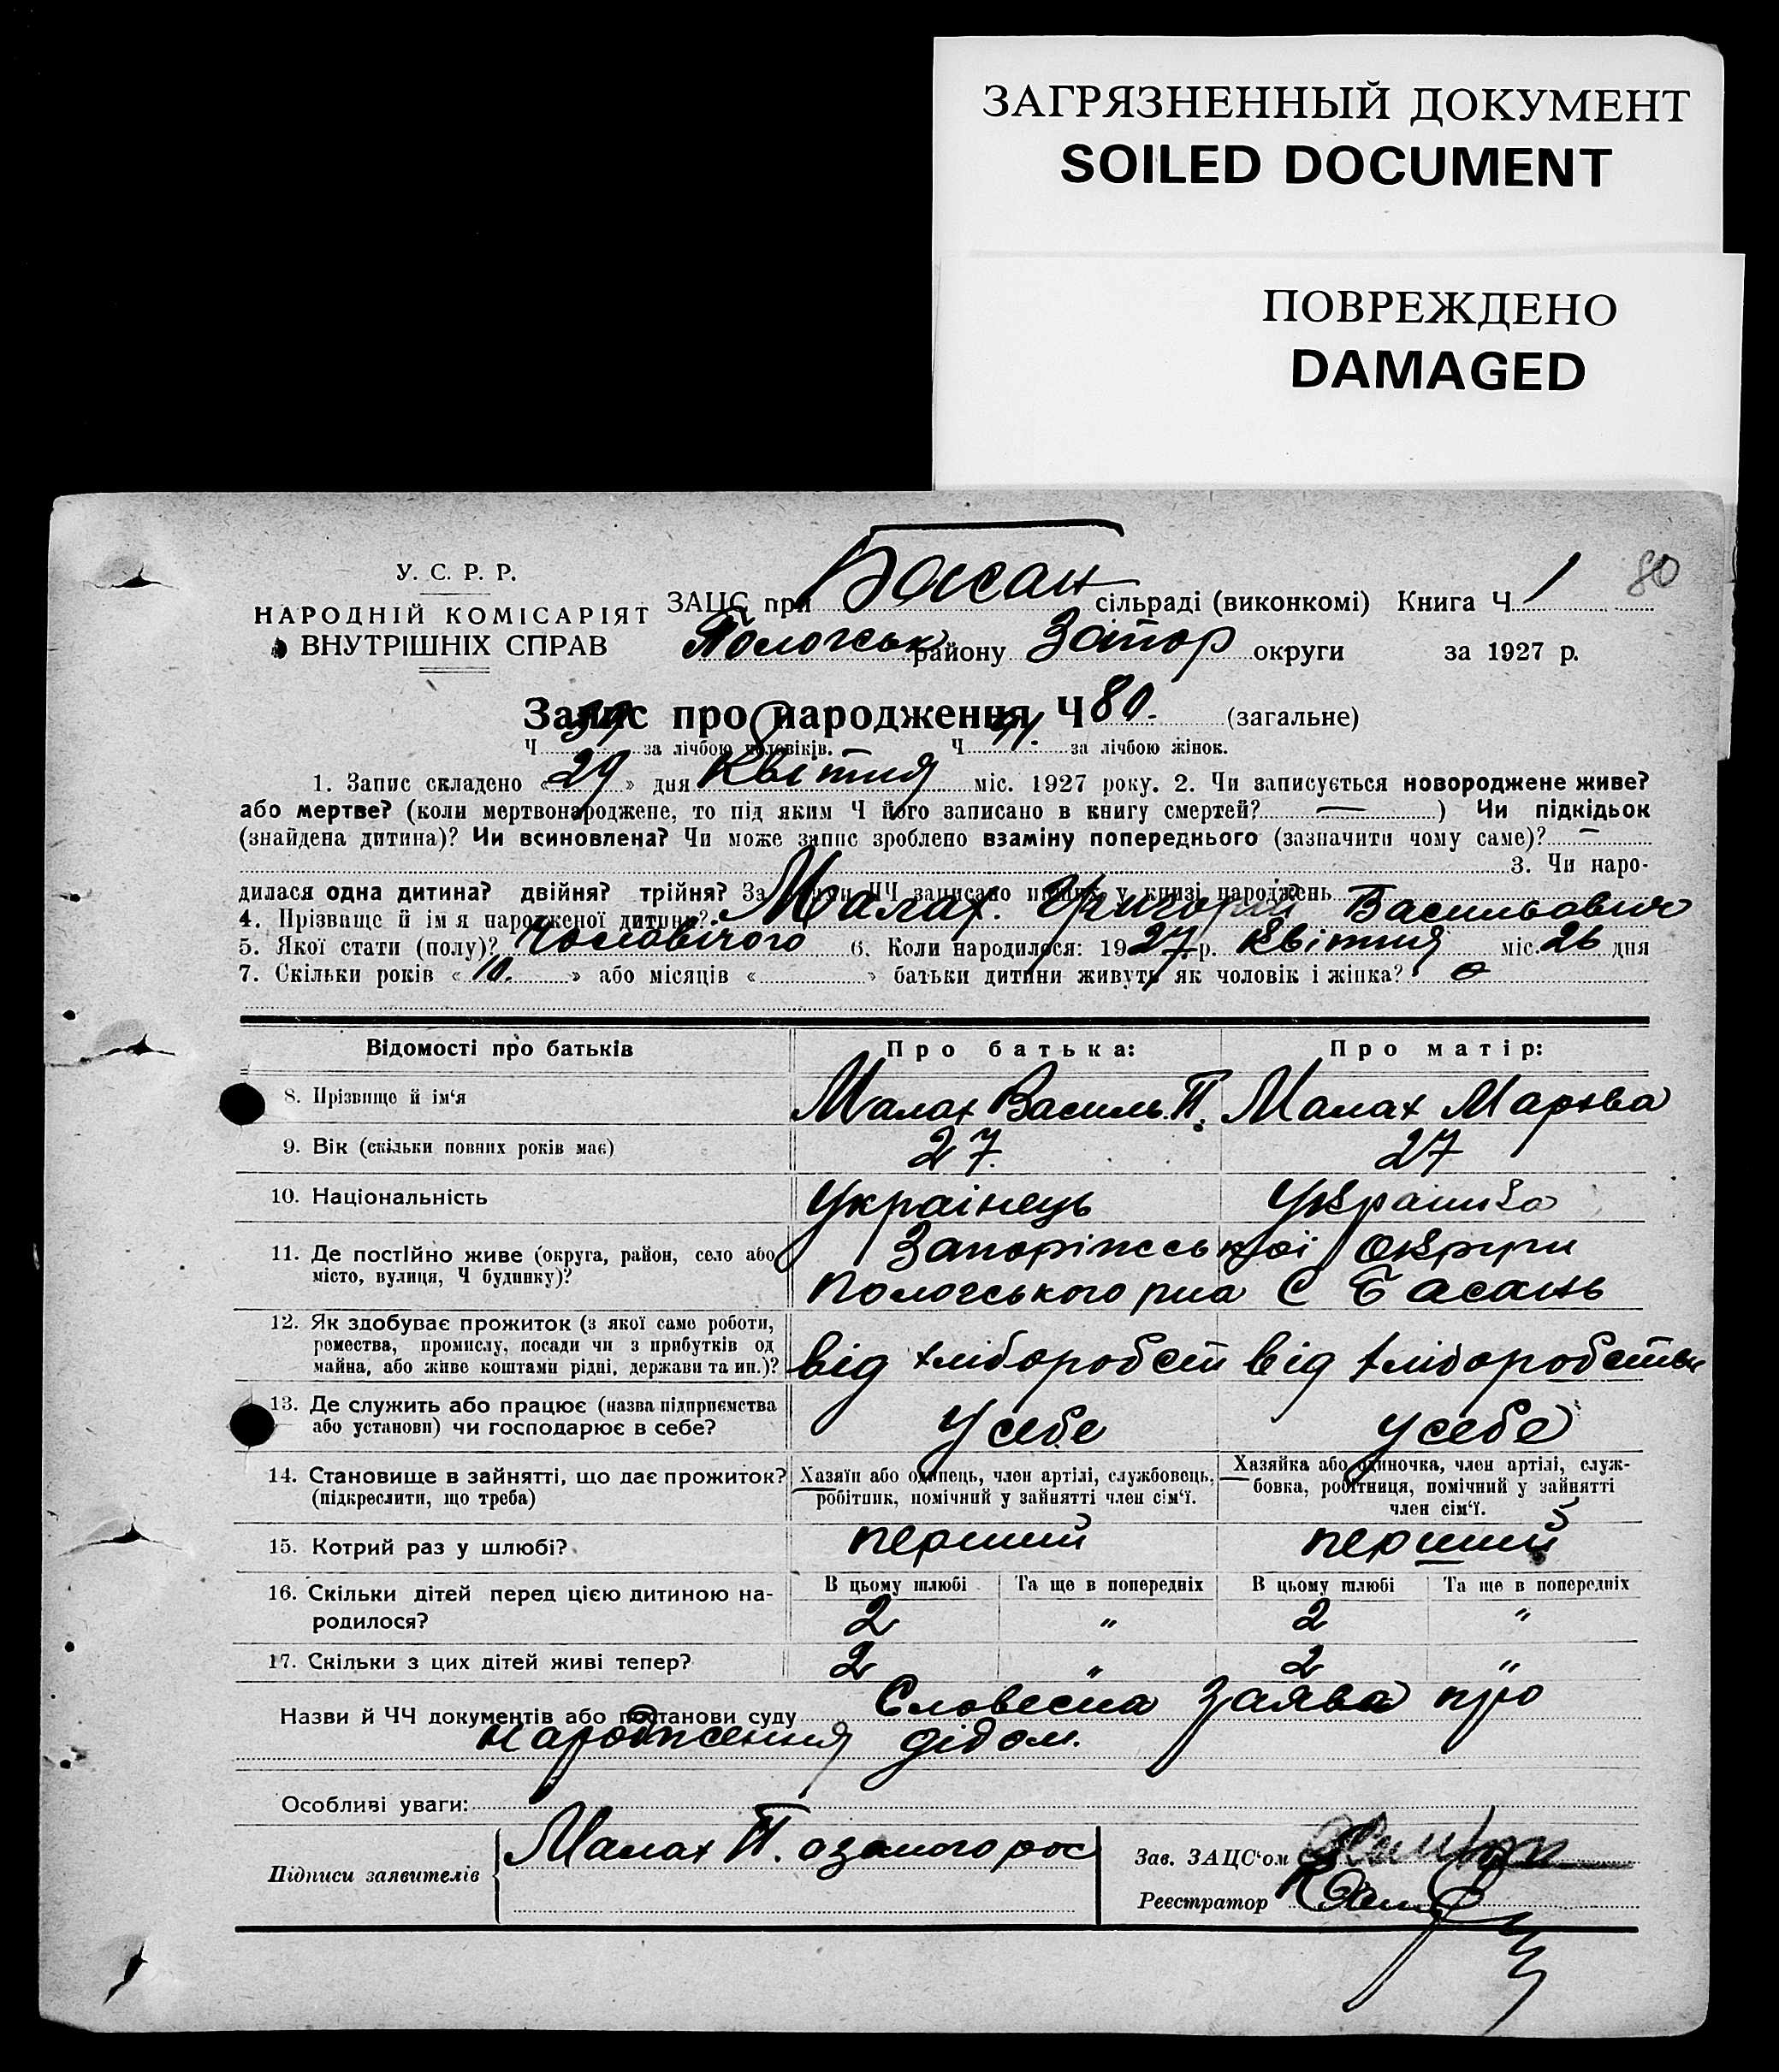 ЗАГРЯЗНЕННЫЙ ДОКУМЕНТ
SOILED DOCUMENT
ПОВРЕЖДЕНО
DAMAGED
У. С. Р. Р.
НАРОДНІЙ КОМІСАРІЯТ
ВНУТРІШНІХ СПРАВ
80
ЗАЦС при Басан сільраді (виконкомі) Книга Ч 1
Пологськ району Запор округи за 1927 р.
Запис про народження Ч 80. (загальне)
Ч 39 за лічбою чоловіків. Ч 41. за лічбою жінок.
1. Запис складено « 29 » дня Квітня міс. 1927 року. 2. Чи записується новороджене живе?
або мертве? (коли мертвонароджене, то під яким Ч його записано в книгу смертей? — ) Чи підкідьок
(знайдена дитина)? Чи всиновлена? Чи може запис зроблено взаміну попереднього (зазначити чому саме)? —
3. Чи наро-
дилася одна дитина? двійня? трійня? За ЧЧ записано у книзі народжень
4. Прізвище й імя народженої дитини? Малах. Григорій Васильович
5. Якої стати (полу)? Чоловічого 6. Коли народилося: 1927 р. Квітня міс. 26 дня
7. Скільки років « 10. » або місяців « » батьки дитини живуть як чоловік і жінка?
Відомості про батьків Про батька: Про матір:
8. Прізвище й ім‘я Малах Василь. П. Малах Марфа
9. Вік (скільки повних років має) 27. 27
10. Національність Українець Українка
11. Де постійно живе (округа, район, село або Запоріжської Округи
місто, вулиця, Ч будинку)? Пологського рна С Басань
12. Як здобуває прожиток (з якої саме роботи,
ремества, промислу, посади чи з прибутків од
майна, або живе коштами рідні, держави та ин.)? від хліборобст від хліборобства
13. Де служить або працює (назва підприємства
або установи) чи господарює в себе? У себе у себе
14. Становище в зайнятті, що дає прожиток? Хазяїн або одинець, член артілі, службовець, Хазяйка або одиночка, член артілі, служ-
(підкреслити, що треба) робітник, помічний у зайнятті член сім‘ї. бовка, робітниця, помічний у зайнятті
член сім‘ї.
15. Котрий раз у шлюбі? перший перший
16. Скільки дітей перед цією дитиною на- В цьому шлюбі Та ще в попередніх В цьому шлюбі Та ще в попередніх
родилося? 2 " 2 "
17. Скільки з цих дітей живі тепер? 2 " 2 "
Назви й ЧЧ документів або постанови суду Словесна заява про
народження дідом.
Особливі уваги:
Підписи заявителів Малах П.
Зав. ЗАЦС‘ом
Реєстратор